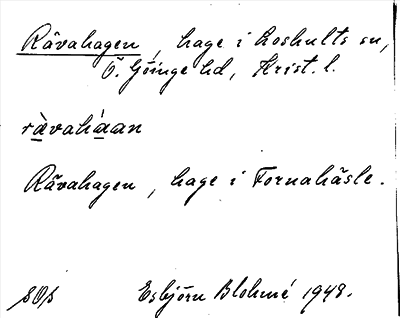 Rävahagen, hage i Loshults sn,
Ö. Göinge hd, Krist. l.
rävaháan
Rävahagen, hage i Fornahäsle.
Esbjörn Blohmé 1948.